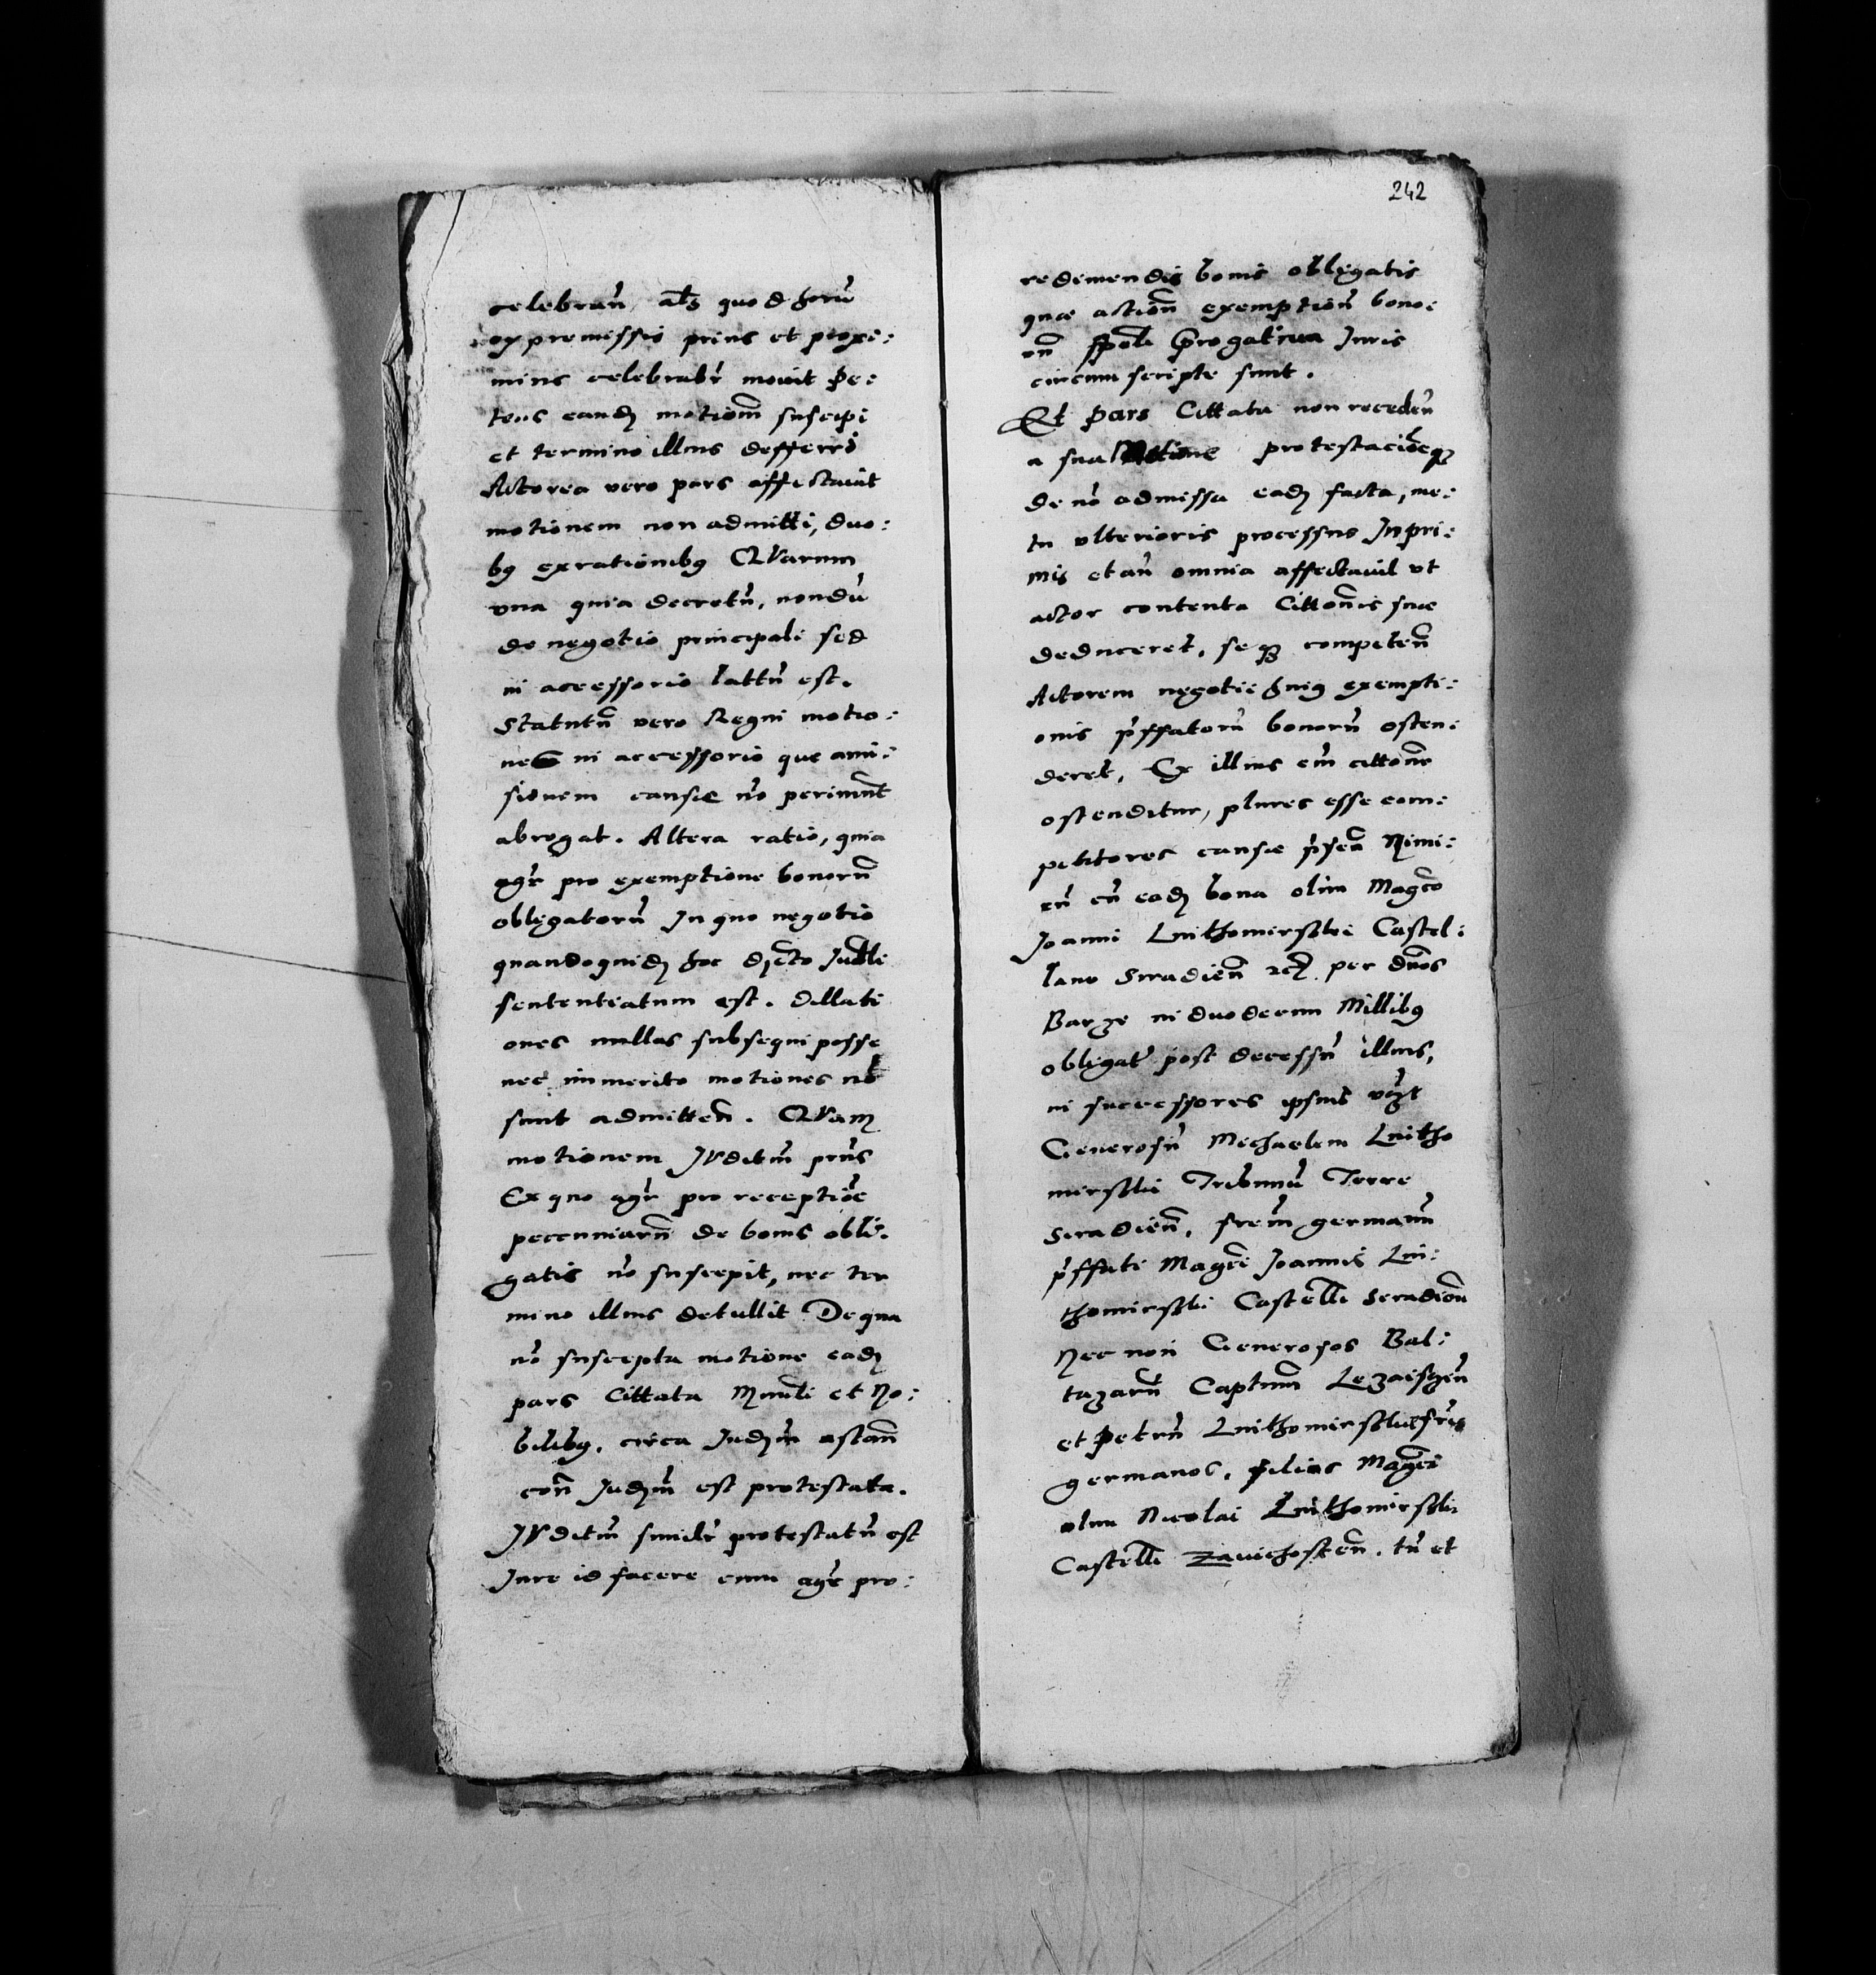 celebran̄, al̄s quod horū
ex premissis prius et proxi:
mius celebrabr̄ mouit Pe:
tens eandȝ motionē suscipi
et termino illius defferri
Actorea vero pars affectauit
motionem non admitti, duo:
bꝰ ex rationibꝰ QVarum
vna quia decretū, nondū
de negotio principali sed
in accessorio lattū est.
Statutū vero Regni motio:
nem in accessorio quae ami:
sionem causae nō perimūt
abrogat. Altera ratio, quia
agr̄ pro exemptione bonorū
obligatorū In quo negotio
quandoquidȝ hoc decto Judli
sententiatum est. dillati
ones nullas subsequi posse
nec immerito motiones nō
sunt admitten̄. QVam
motionem JVditm̄ prns
Ex quo agr̄ pro receptiōe
peccuniarū de bonis obli:
gatis nō suscepit, nec ter
mino illius detullit De qua
nō suscepta motione eadȝ
pars Cittata Mnnti et No:
bilibꝰ. circa Judȝm̄ astan̄
con̄ Judȝm̄ est protestata.
JVditm̄ similr̄ protestatū est
Jure id facere cum agr̄ pro:
242
redimendis bonis obligatis
quae action̄ exemption̄ bono:
rū sp̄ali Prerogatiua Juris
circum scripte sunt.
Et Pars Cittata non receden̄
a sua Motione protestaciōeqȝ
de nō admissa eadȝ facta, me:
tu vlterioris processus Inpri:
mis et an̄ omnia affectauit vt
actor contenta Cittonis suae
deduceret, se qȝ competen̄
Actorem negotii huiꝰ exempti:
onis p̄ffatorū bonorū osten:
deret, Ex illius em̄ cittone
ostenditur, plures esse com:
petitores causae p̄sen̄ Nimi:
rū cū eadȝ bona olim Magco
Joanni Luthomirskii Castel:
lano Siradien̄ etc. per dnos
Barze in duodecim Millibꝰ
obligat̄ post decessū illius,
in successores ipsius vȝt
Generosū Michaelem Lutho
mirskii Tribunū Terre
Siradien̄, frem̄ germanū
p̄ffati Magci Joannis Lu:
thomirskii Castelli Siradien̄
Nec non Generosos Bal:
tazarū Captnm̄ Lezaiscen̄
et Petrū Luthomirskie fr̄es
germanos, filios Magci
olim Nicolai Luthomirskii
Castelli Zawichosten̄. tū et